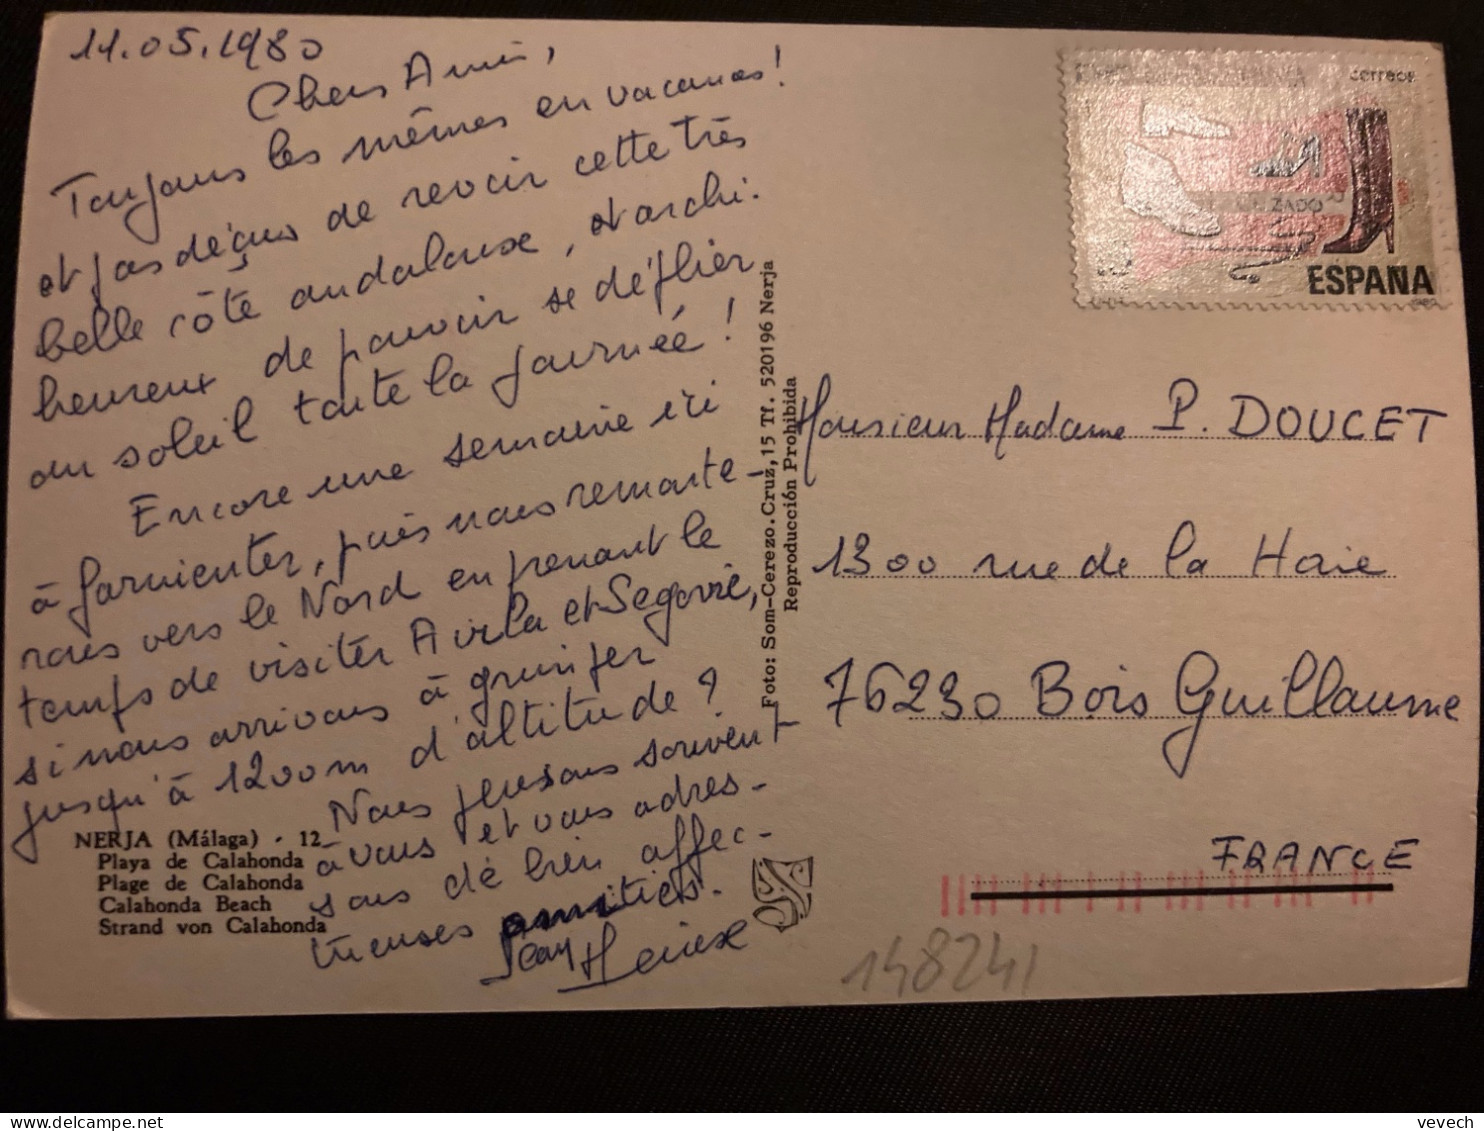 11.05.1980
Chers Amis,
Toujours les mêmes en vacances!
et pas déçus de revoir cette très
belle côte andalouse, et archi-
heureux de pouvoir se déplier
au soleil toute la journée!
Encore une semaine ici
à farnienter, puis nous remonte-
rons vers le Nord en prenant le
temps de visiter Avila et Ségovie,
si nous arrivons à grimper
jusqu'à 1200m d'altitude?
Nous pensons souvent
à vous et vous adres-
sons de bien affec-
tueuses amitiés.
Jean
NERJA (Málaga) - 12
Playa de Calahonda
Plage de Calahonda
Calahonda Beach
Strand von Calahonda
Foto: Som-Cerezo. Cruz, 15 Tf. 520196 Nerja
Reproducción Prohibida
correos
CALZADO
ESPAÑA
Monsieur Madame P. DOUCET
1300 rue de la Haie
76230 Bois Guillaume
FRANCE
148241
vevech